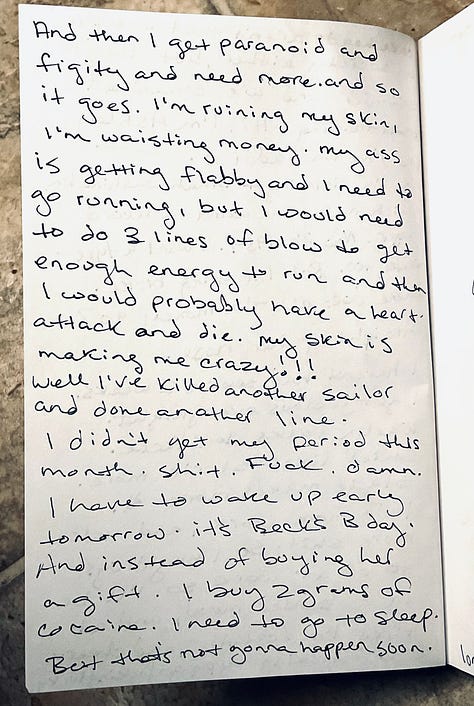 And then I get paranoid and
figity and need more. and so
it goes. I'm ruining my skin,
I'm waisting money. my ass
is getting flabby and I need to
go running, but I would need
to do 3 lines of blow to get
enough energy to run and then
I would probably have a heart-
attack and die. my skin is
making me crazy!!!
Well I've killed another sailor
and done another line.
I didn't get my period this
month. shit. Fuck. damn.
I have to wake up early
tomorrow. it's Beck's B day.
And instead of buying her
a gift. I buy 2 grams of
cocaine. I need to go to sleep.
But that's not gonna happen soon.